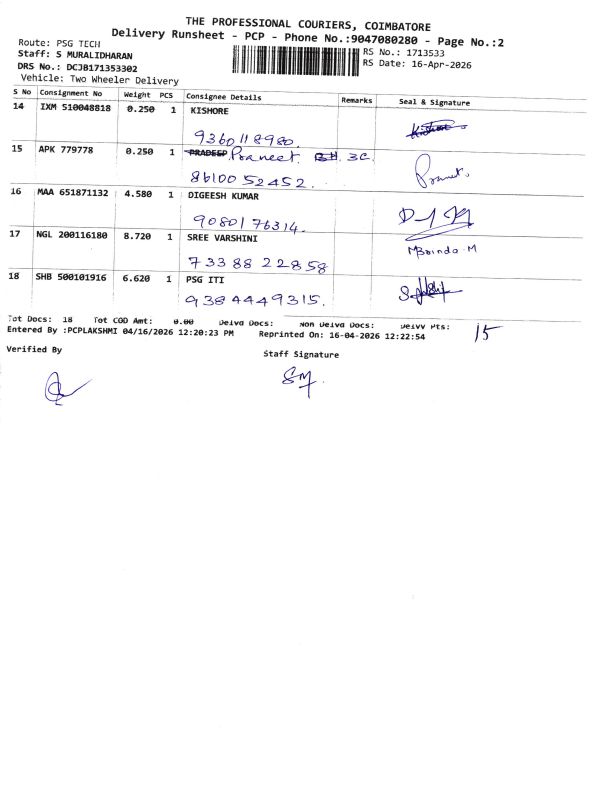 THE PROFESSIONAL COURIERS, COIMBATORE
Delivery Runsheet - PCP - Phone No.:9047080280 - Page No.:2
Route: PSG TECH
Staff: S MURALIDHARAN
DRS No.: DCJB171353302
Vehicle: Two Wheeler Delivery
RS No.: 1713533
RS Date: 16-Apr-2026
S No Consignment No Weight PCS Consignee Details Remarks Seal & Signature
14 IXM 510048818 0.250 1 KISHORE Kishore
9360118980.
15 APK 779778 0.250 1 PRADEEP Praneet. BH. 3C. Praneet.
8610052452.
16 MAA 651871132 4.580 1 DIGEESH KUMAR
9080176314.
17 NGL 200116180 8.720 1 SREE VARSHINI
73388 22858
18 SHB 500101916 6.620 1 PSG ITI
9384449315.
Tot Docs: 18 Tot COD Amt: 0.00 Delvd Docs: Non Delvd Docs: Delvy Pts: 15
Entered By :PCPLAKSHMI 04/16/2026 12:20:23 PM Reprinted On: 16-04-2026 12:22:54
Verified By
Staff Signature